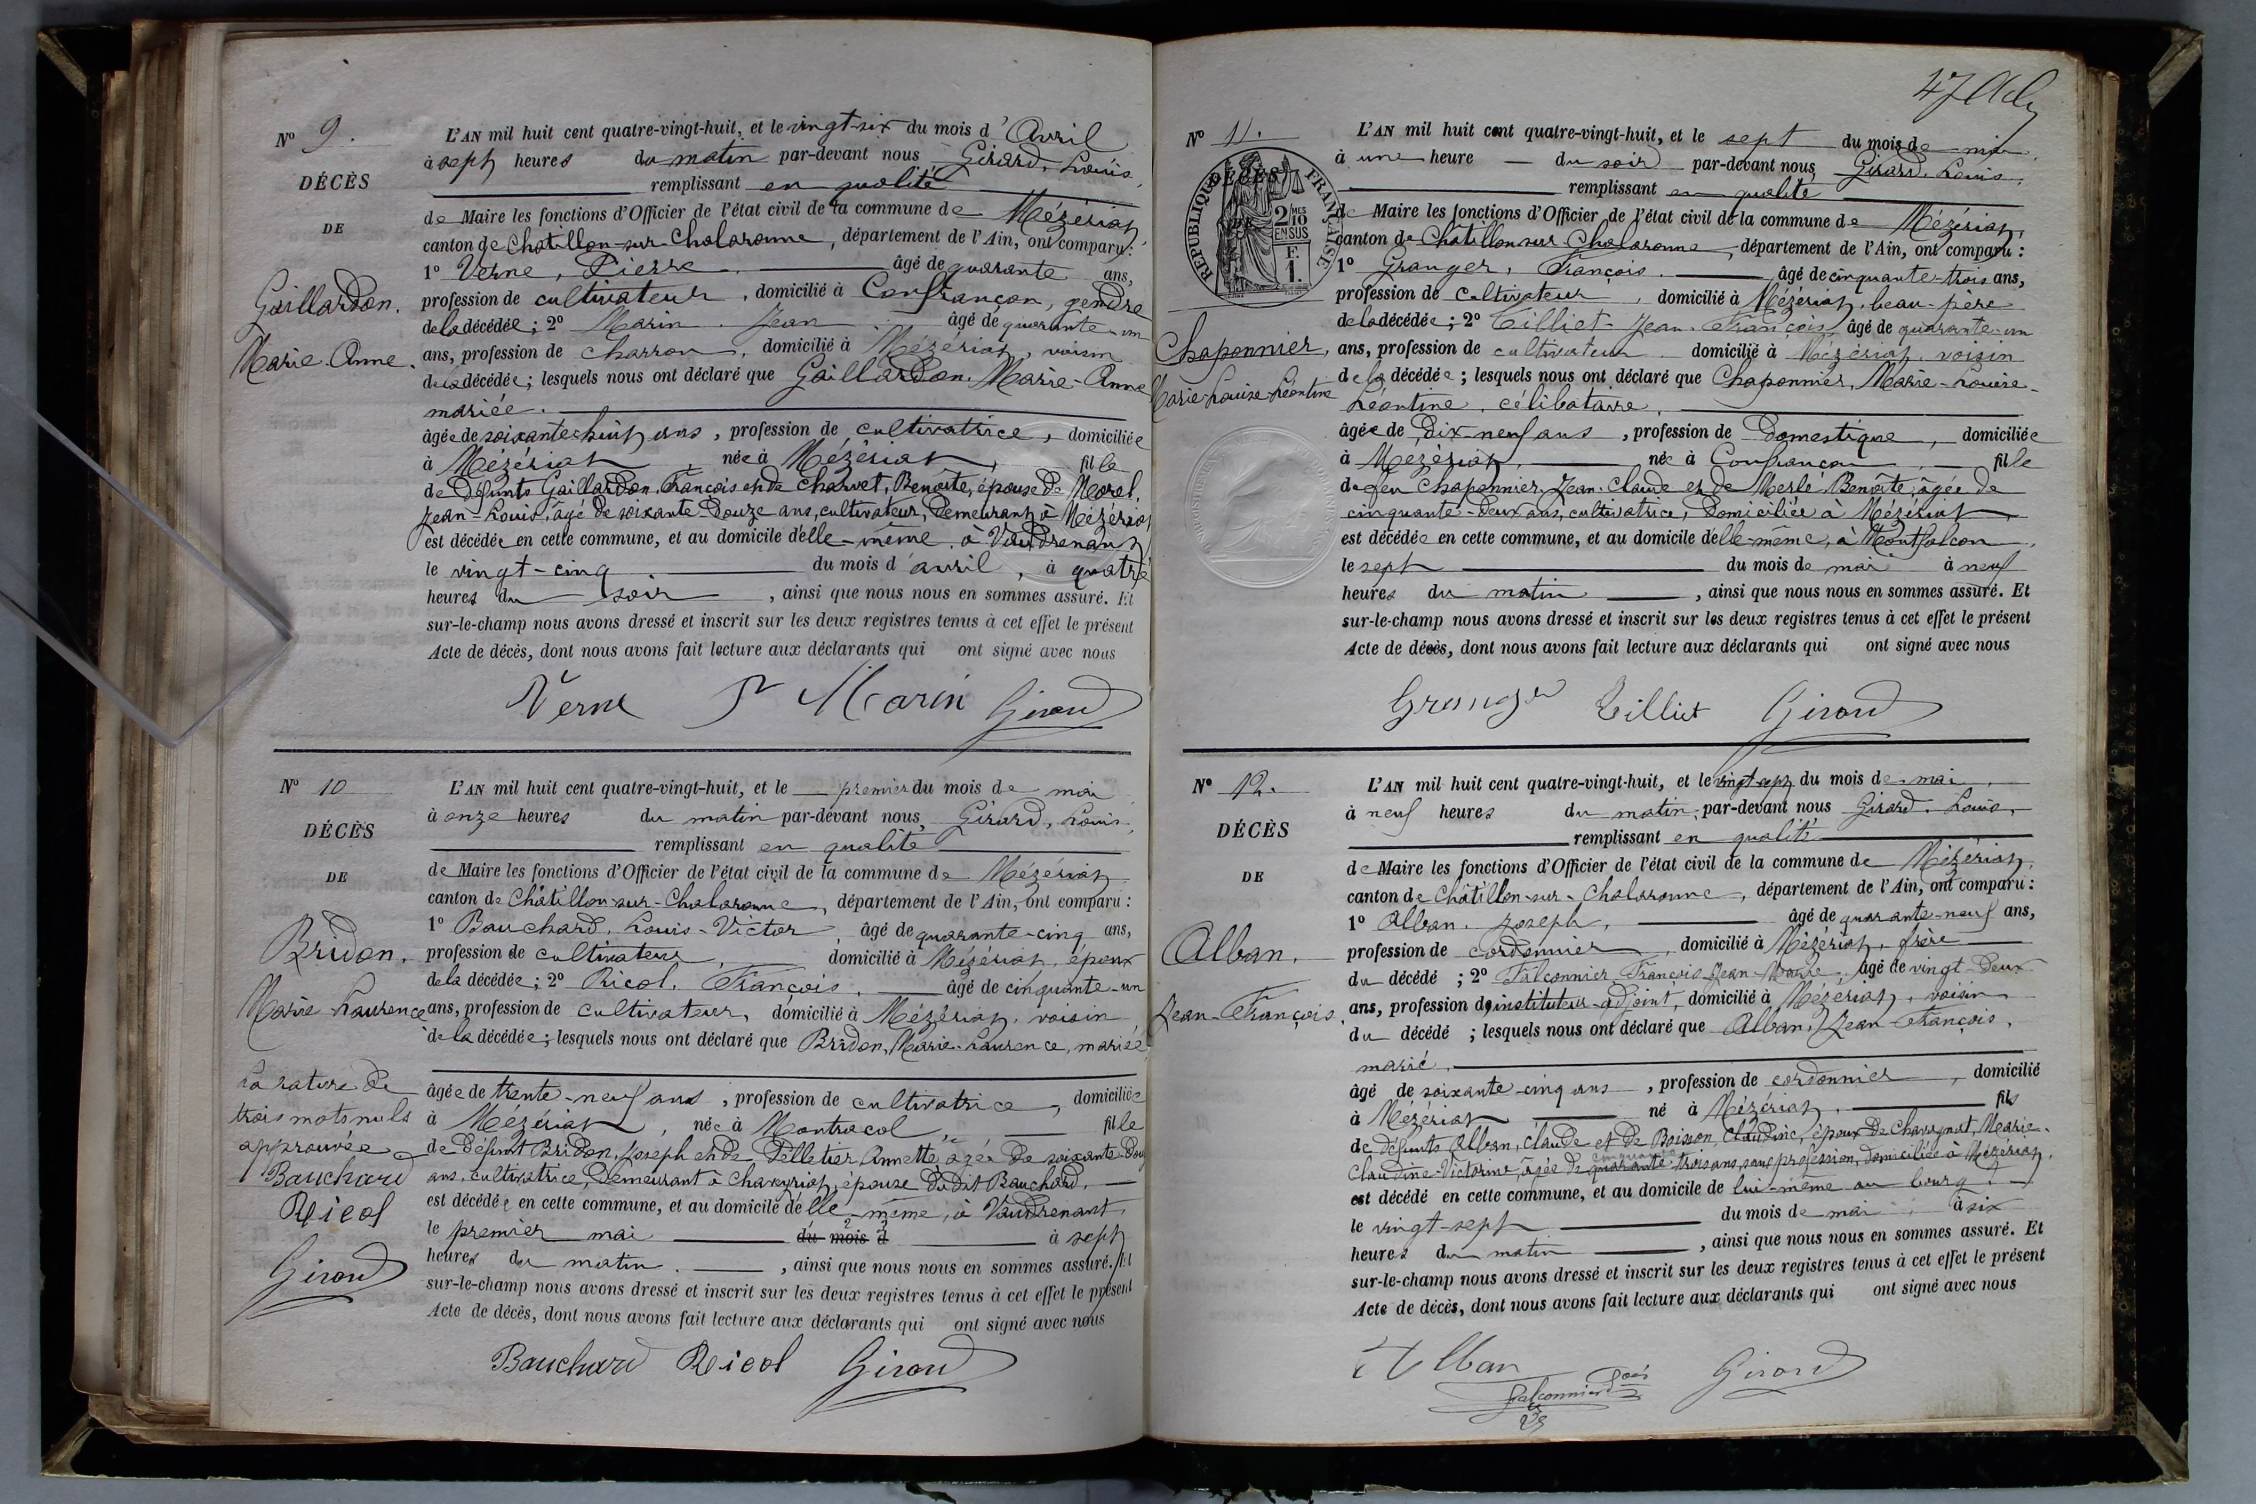 Nº 9.
DÉCÈS
DE
Gaillardon.
Marie-Anne.
L'AN mil huit cent quatre-vingt-huit, et le vingt-six du mois d'Avril
à sept heures du matin par-devant nous Girard, Louis,
remplissant en qualité
de Maire les fonctions d'Officier de l'état civil de la commune de Mézériat,
canton de Châtillon-sur-Chalaronne, département de l'Ain, ont comparu :
1º Verne, Pierre, âgé de quarante ans,
profession de cultivateur, domicilié à Confrançon, gendre
de la décédée ; 2º Marin, Jean âgé de quarante-un
ans, profession de charron, domicilié à Mézériat, voisin
de la décédée ; lesquels nous ont déclaré que Gaillardon, Marie-Anne
mariée.
âgée de soixante-huit ans, profession de cultivatrice, domiciliée
à Mézériat, née à Mézériat, fille
de défunts Gaillardon, François et de Charvet, Benoîte, épouse de Morel,
Jean-Louis, âgé de soixante-douze ans, cultivateur, demeurant à Mézériat
est décédée en cette commune, et au domicile d'elle-même, à Vaudrenant
le vingt-cinq du mois d'avril, à quatre
heures du soir, ainsi que nous nous en sommes assuré. Et
sur-le-champ nous avons dressé et inscrit sur les deux registres tenus à cet effet le présent
Acte de décès, dont nous avons fait lecture aux déclarants qui ont signé avec nous
Verne Marin Girard
Nº 10
DÉCÈS
DE
Bridon.
Marie-Laurence
La rature de
trois mots nuls
approuvée
Bauchard
Ricol
Girard
L'AN mil huit cent quatre-vingt-huit, et le premier du mois de mai
à onze heures du matin par-devant nous Girard, Louis,
remplissant en qualité
de Maire les fonctions d'Officier de l'état civil de la commune de Mézériat
canton de Châtillon-sur-Chalaronne, département de l'Ain, ont comparu :
1º Bauchard, Louis-Victor âgé de quarante-cinq ans,
profession de cultivateur, domicilié à Mézériat, époux
de la décédée ; 2º Ricol, François, âgé de cinquante-un
ans, profession de cultivateur, domicilié à Mézériat, voisin
de la décédée ; lesquels nous ont déclaré que Bridon, Marie-Laurence, mariée
âgée de trente-neuf ans, profession de cultivatrice, domiciliée
à Mézériat, née à Montracol, fille
de défunt Bridon, Joseph et de Pelletier, Annette, âgée de soixante-dou
ans, cultivatrice, demeurant à Chaveyriat, épouse dudit Bauchard,
est décédée en cette commune, et au domicile d'elle-même, à Vaudrenant,
le premier mai du mois d à sept
heures du matin, ainsi que nous nous en sommes assuré. Et
sur-le-champ nous avons dressé et inscrit sur les deux registres tenus à cet effet le présent
Acte de décès, dont nous avons fait lecture aux déclarants qui ont signé avec nous
Bauchard Ricol Girard
47
Nº 11.
DÉCÈS
RÉPUBLIQUE FRANÇAISE
2/10 MES
EN SUS
F.
1.
Chaponnier,
Marie-Louise-Léontine
L'AN mil huit cent quatre-vingt-huit, et le sept du mois de mai
à une heure du soir par-devant nous Girard, Louis,
remplissant en qualité
de Maire les fonctions d'Officier de l'état civil de la commune de Mézériat,
canton de Châtillon-sur-Chalaronne, département de l'Ain, ont comparu :
1º Granger, François, âgé de cinquante-trois ans,
profession de cultivateur, domicilié à Mézériat, beau-père
de la décédée ; 2º Tilliet Jean-François, âgé de quarante-un
ans, profession de cultivateur domicilié à Mézériat, voisin
de la décédée ; lesquels nous ont déclaré que Chaponnier, Marie-Louise-
Léontine, célibataire.
âgée de dix-neuf ans, profession de domestique, domiciliée
à Mézériat, née à Confrançon, fille
de feu Chaponnier, Jean-Claude et de Merle, Benoîte, âgée de
cinquante-deux ans, cultivatrice, domiciliée à Mézériat,
est décédée en cette commune, et au domicile d'elle-même, à Montfalcon,
le sept du mois de mai à neuf
heures du matin, ainsi que nous nous en sommes assuré. Et
sur-le-champ nous avons dressé et inscrit sur les deux registres tenus à cet effet le présent
Acte de décès, dont nous avons fait lecture aux déclarants qui ont signé avec nous
Granger Tilliet Girard
Nº 12.
DÉCÈS
DE
Alban.
Jean-François.
L'AN mil huit cent quatre-vingt-huit, et le vingt-sept du mois de mai
à neuf heures du matin, par-devant nous Girard, Louis,
remplissant en qualité
de Maire les fonctions d'Officier de l'état civil de la commune de Mézériat
canton de Châtillon-sur-Chalaronne, département de l'Ain, ont comparu :
1º Alban, Joseph, âgé de quarante-neuf ans,
profession de cordonnier, domicilié à Mézériat, frère
du décédé ; 2º Falconnier François-Jean-Marie, âgé de vingt-deux
ans, profession d'instituteur-adjoint, domicilié à Mézériat, voisin
du décédé ; lesquels nous ont déclaré que Alban, Jean-François,
marié.
âgé de soixante-cinq ans, profession de cordonnier, domicilié
à Mézériat né à Mézériat, fils
de défunts Alban, Claude et de Boisson, Claudine, époux de Chavagnat, Marie-
cinquante
Claudine-Victorine, âgée de quarante-trois ans, sans profession, domiciliée à Mézériat,
est décédé en cette commune, et au domicile de lui-même au bourg,
le vingt-sept du mois de mai à six
heures du matin, ainsi que nous nous en sommes assuré. Et
sur-le-champ nous avons dressé et inscrit sur les deux registres tenus à cet effet le présent
Acte de décès, dont nous avons fait lecture aux déclarants qui ont signé avec nous
Alban Falconnier Girard